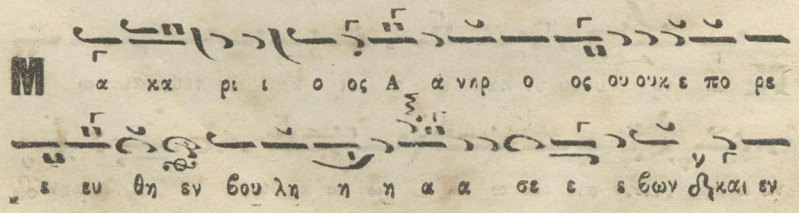 Μ α κα ρι ι ο ος Α α νηρ ο ος ου ουκ ε πο ρε
ε ευ θη εν βου λη η η α α σε ε ε βων και εν